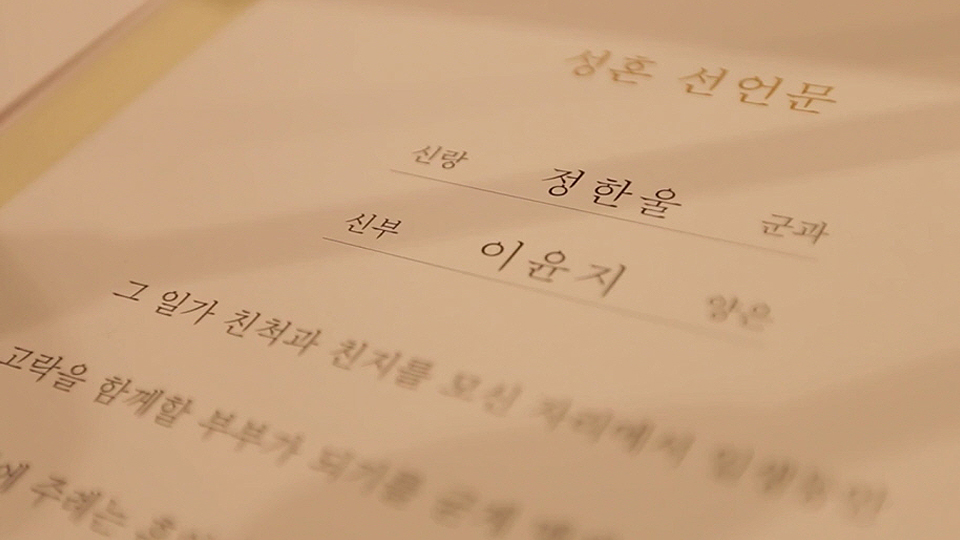 성혼 선언문
신랑 정한울 군과
신부 이윤지 양은
그 일가 친척과 친지를 모신 자리에서 일생동안
고락을 함께할 부부가 되기를 굳게
주례는